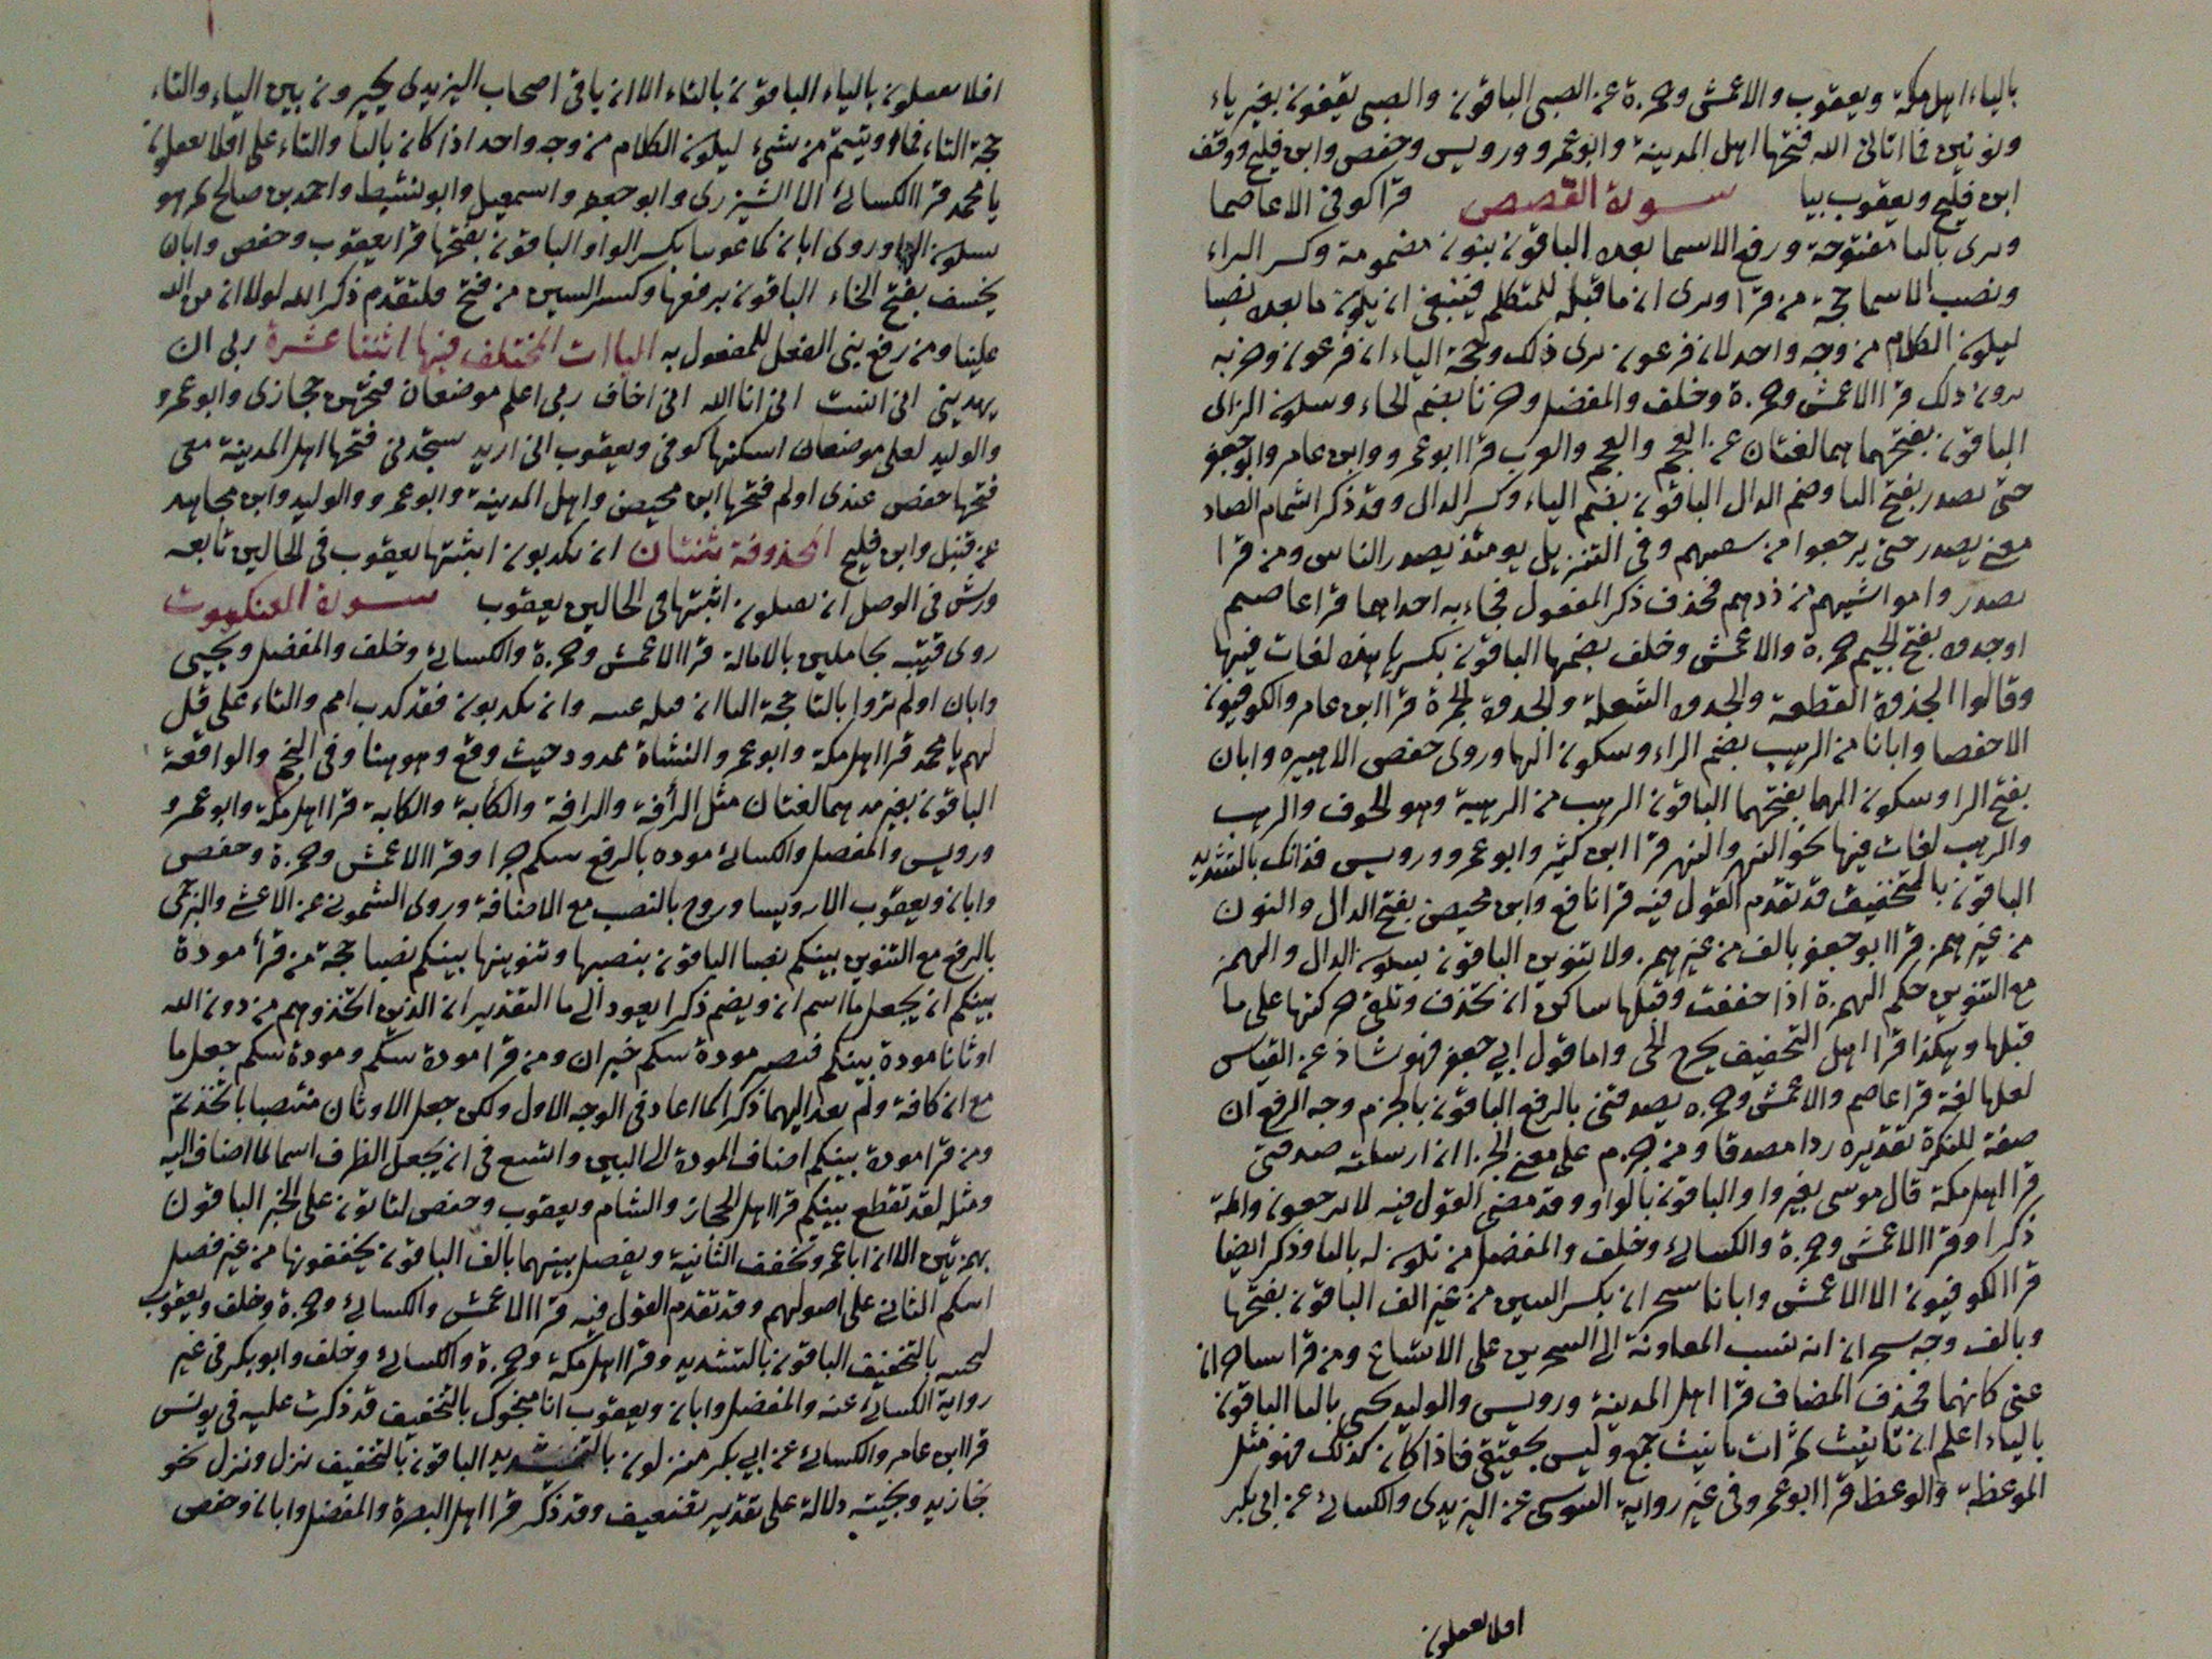 بالياء اهل مكة ويعقوب والاعمش وحمزة عن الصبى الباقون والصبى يقفون بغير ياء
ونونين فما اتانى الله فتحها اهل المدينة وابو عمرو ورويس وحفص وابن فليح ووقف
ابن فليح ويعقوب بيا سورة القصص قرا كوفى الا عاصما
ويرى بالبا مفتوحة ورفع الاسما بعده الباقون بنون مضمومة وكسر الراء
ونصب الاسما حجة من قرا ونرى ان ما قبله للمتكلم فينبغى ان يكون ما بعده ايضا
ليكون الكلام من وجه واحد لان فرعون نرى ذلك وحجة الياء ان فرعون وحزبه
يرون ذلك قرا الاعمش وحمزة وخلف والمفضل وحزنا بضم الحاء وسكون الزاى
الباقون بفتحهما هما لغتان عن العجم والعجم والعرب قرا ابو عمرو وابن عامر وابو جعفر
حتى يصدر بفتح اليا وضم الدال الباقون بضم الياء وكسر الدال وقد ذكر اشمام الصاد
معنى يصدر حتى يرجعوا من سعيهم وفى التنزيل يومئذ يصدر الناس ومن قرا
يصدر وا مواشيهم من ذدهم فحذف ذكر المفعول فجاءبه احداهما قرا عاصم
او جذوة بفتح الجيم حمزة والاعمش وخلف بضمها الباقون بكسرها هذه لغات فيها
وقالوا الجذوة القطعة والجذوة الشعلة والجذوة الجمرة قرا ابن عامر والكوفيون
الا حفصا وابانا من الرهب بضم الراء وسكون الها وروى حفص الا هبيره وابان
بفتح الرا وسكون الها بفتحهما الباقون الرهب من الرهبة وهو الخوف والرهب
والرهب لغات فيها نحو النهر والنهر قرا ابن كثير وابو عمرو ورويس فذانك بالتشديد
الباقون بالتخفيف قد تقدم القول فيه قرا نافع وابن محيصن بفتح الدال والنون
من غير همز قرا ابو جعفر بالف من غير همز ولا تنوين الباقون بسكون الدال والهمز
مع التنوين حكم الهمزة اذا خففت وقبلها ساكن ان تحذف وتلقى حركتها على ما
قبلها وهكذا قرا اهل التخفيف يخرج الخى واما قول ابي جعفر فهو شاذ عن القياس
لعلها لغة قرا عاصم والاعمش وحمزه يصدقنى بالرفع الباقون بالجزم وجه الرفع ان
صفة للنكرة تقديره ردا مصدقا ومن جزم على معنى الجزا ان ارسلته صدقنى
قرا اهل مكة قال موسى بغير واو الباقون بالواو وقد مضى القول فيه لا يرجعون وائمة
ذكرا وقرا الاعمش وحمزة والكسائى وخلف والمفضل من تكون له بالبا وذكر ايضا
قرا الكوفيون الا الاعمش وابانا سحران بكسر السين من غير الف الباقون بفتحها
وبالف وجه سحران انه نسب المعاونة الى السحرين على الاتساع ومن قرا ساحران
عنى كانهما فحذف المضاف قرا اهل المدينة ورويس والوليد تجبى بالتا الباقون
بالياء اعلم ان تانيث ثمرات تانيث جمع وليس بحقيقى فاذا كان كذلك فهو مثل
الموعظة والوعظ قرا ابو عمرو فى غير رواية السوسى عن اليزيدى والكسائى عن ابى بكر
افلا تعقلون
افلا يعقلون بالياء الباقون بالتاء الا ان باقى اصحاب اليزيدى يخيرون بين الياء والتاء
حجة التاء فما اوتيتم من شىء ليكون الكلام من وجه واحد اذا كان باليا والتاء على افلا يعقلون
يا محمد قرا الكسائى الا الشيزرى وابو جعفر واسمعيل وابو نشيط واحمد بن صالح ثم هو
بسكون الها وروى ابان كما غوينا بكسر الواو الباقون بفتحها قرا يعقوب وحفص وابان
يخسف بفتح الخاء الباقون برفعها وكسر السين من فتح فلتقدم ذكر الله لولا ان من الله
علينا ومن رفع بنى الفعل للمفعول به الياات المختلف فيها اثنتا عشرة ربى ان
يهدينى انى انست انى انا الله انى اخاف ربى اعلم موضعان فتحهن حجازى وابو عمرو
والوليد لعلى موضعان اسكنها كوفى ويعقوب انى اريد ستجدنى فتحها اهل المدينة معى
فتحها حفص عندى اولم فتحها ابن محيصن واهل المدينة وابو عمرو والوليد وابن مجاهد
عن قنبل وابن فليح المحذوفة ثنتان ان يكذبون اثبتها يعقوب فى الحالين تابعه
ورش فى الوصل ان يقتلون اثبتها فى الحالين يعقوب سورة العنكبوت
روى قتيبه بحاملين بالامالة قرا الاعمش وحمزة والكسائى وخلف والمفضل ويحيى
وابان اولم تروا بالتا حجة اليا ان قبله غيبه وان يكذبون فقد كذب امم والتاء على قل
لهم يا محمد قرا اهل مكة وابو عمرو النشاة ممدود حيث وقع وهو هنا وفى النجم والواقعة
الباقون بغير مد هما لغتان مثل الرأفة والرافة والكأبة والكابة قرا اهل مكة وابو عمرو
ورويس والمفضل والكسائى موده بالرفع بينكم جرا وقرا الاعمش وحمزة وحفص
وابان ويعقوب الا رويسا وروح بالنصب مع الاضافة وروى الشمونى عن الاعشى والبرجمى
بالرفع مع التنوين بينكم نصبا الباقون بنصبها وتنوينها بينكم نصبا حجة من قرأ مودة
بينكم ان يجعل ما اسم ان ويضم ذكرا يعود الى ما التقدير ان الذين اتخذوهم من دون الله
اوثانا مودة بينكم فتصير مودة بينكم خبر ان ومن قرا مودة بينكم ومودة بينكم جعل ما
مع ان كافة ولم يعد اليهما ذكرا كما اعاد فى الوجه الاول ولكن جعل الاوثان منتصبا باتخذتم
ومن قرا مودة بينكم اضاف المودة الى البين واتسع فى ان يجعل الظرف اسما لما اضاف اليه
ومثله لقد تقطع بينكم قرا اهل الحجاز والشام ويعقوب وحفص لتاتون على الخبر الباقون
بهمزتين الا ان ابا عمرو تخفف الثانية ويفصل بينهما بالف الباقون يخففونها من غير فصل
انتكم الثانى على اصولهم وقد تقدم القول فيه قرا الاعمش والكسائى وحمزة وخلف ويعقوب
لننجينه بالتخفيف الباقون بالتشديد وقرا اهل مكة وحمزة والكسائى وخلف وابو بكر فى غير
رواية الكسائى عنه والمفضل وابان ويعقوب انا منجوك بالتخفيف قد ذكرت عليه فى يونس
قرا ابن عامر والكسائى عن ابي بكر منزلون بالتشديد الباقون بالتخفيف نزل ونزل نحو
نجا زيد ونجيته دلالة على تقدير تضعيف وقد ذكر قرا اهل البصرة والمفضل وابان وحفص